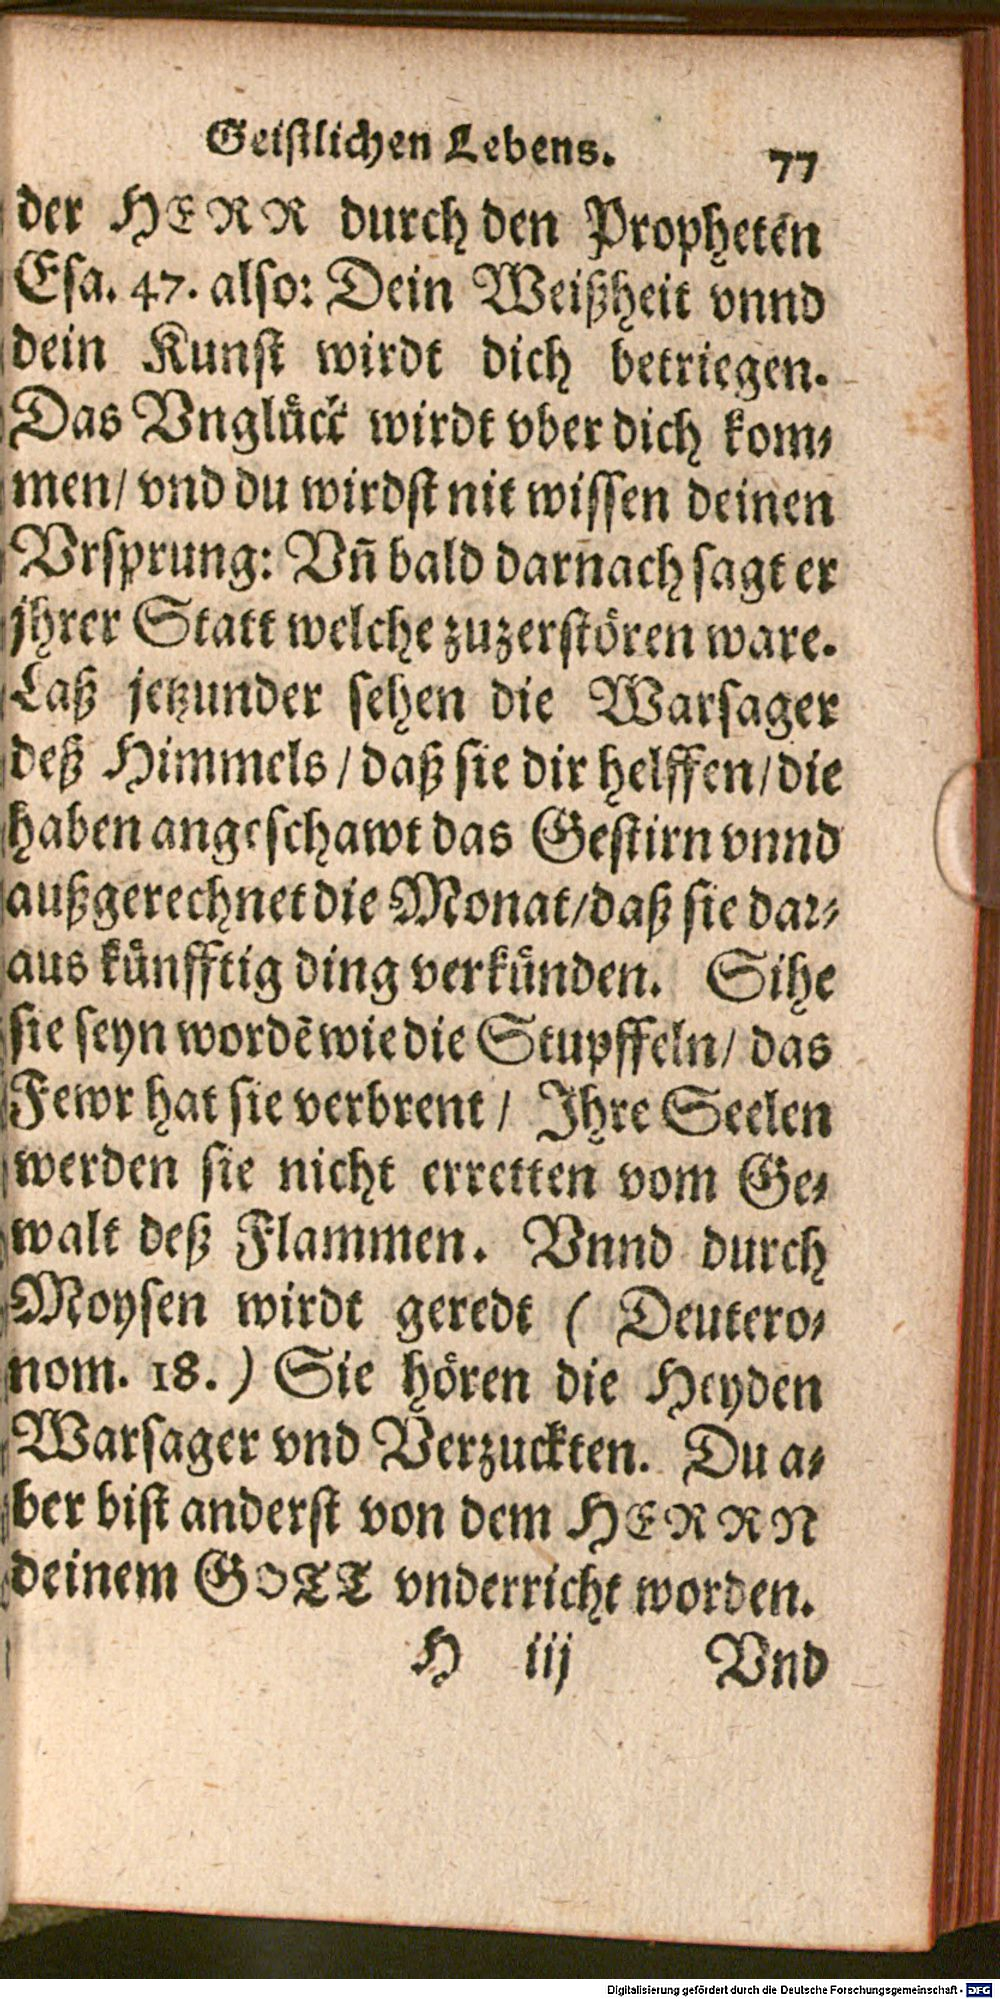 Geistlichen Lebens. 77
der HERR durch den Propheten
Esa. 47. also: Dein Weißheit vnnd
dein Kunst wirdt dich betriegen.
Das Vnglůck wirdt vber dich kom-
men/ vnd du wirdst nit wissen deinen
Vrsprung: Vñ bald darnach sagt er
jhrer Statt welche zuzerstören ware.
Laß jetzunder sehen die Warsager
deß Himmels / daß sie dir helffen/ die
haben angeschawt das Gestirn vnnd
außgerechnet die Monat/ daß sie dar-
aus kůnfftig ding verkůnden. Sihe
sie seyn wordẽ wie die Stupffeln/ das
Fewr hat sie verbrent / Ihre Seelen
werden sie nicht erretten vom Ge-
walt deß Flammen. Vnnd durch
Moysen wirdt geredt ( Deutero-
nom. 18. ) Sie hören die Heyden
Warsager vnd Verzuckten. Du a-
ber bist anderst von dem HERRN
deinem GOTT vnderricht worden.
H iij Vnd
Digitalisierung gefördert durch die Deutsche Forschungsgemeinschaft - DFG